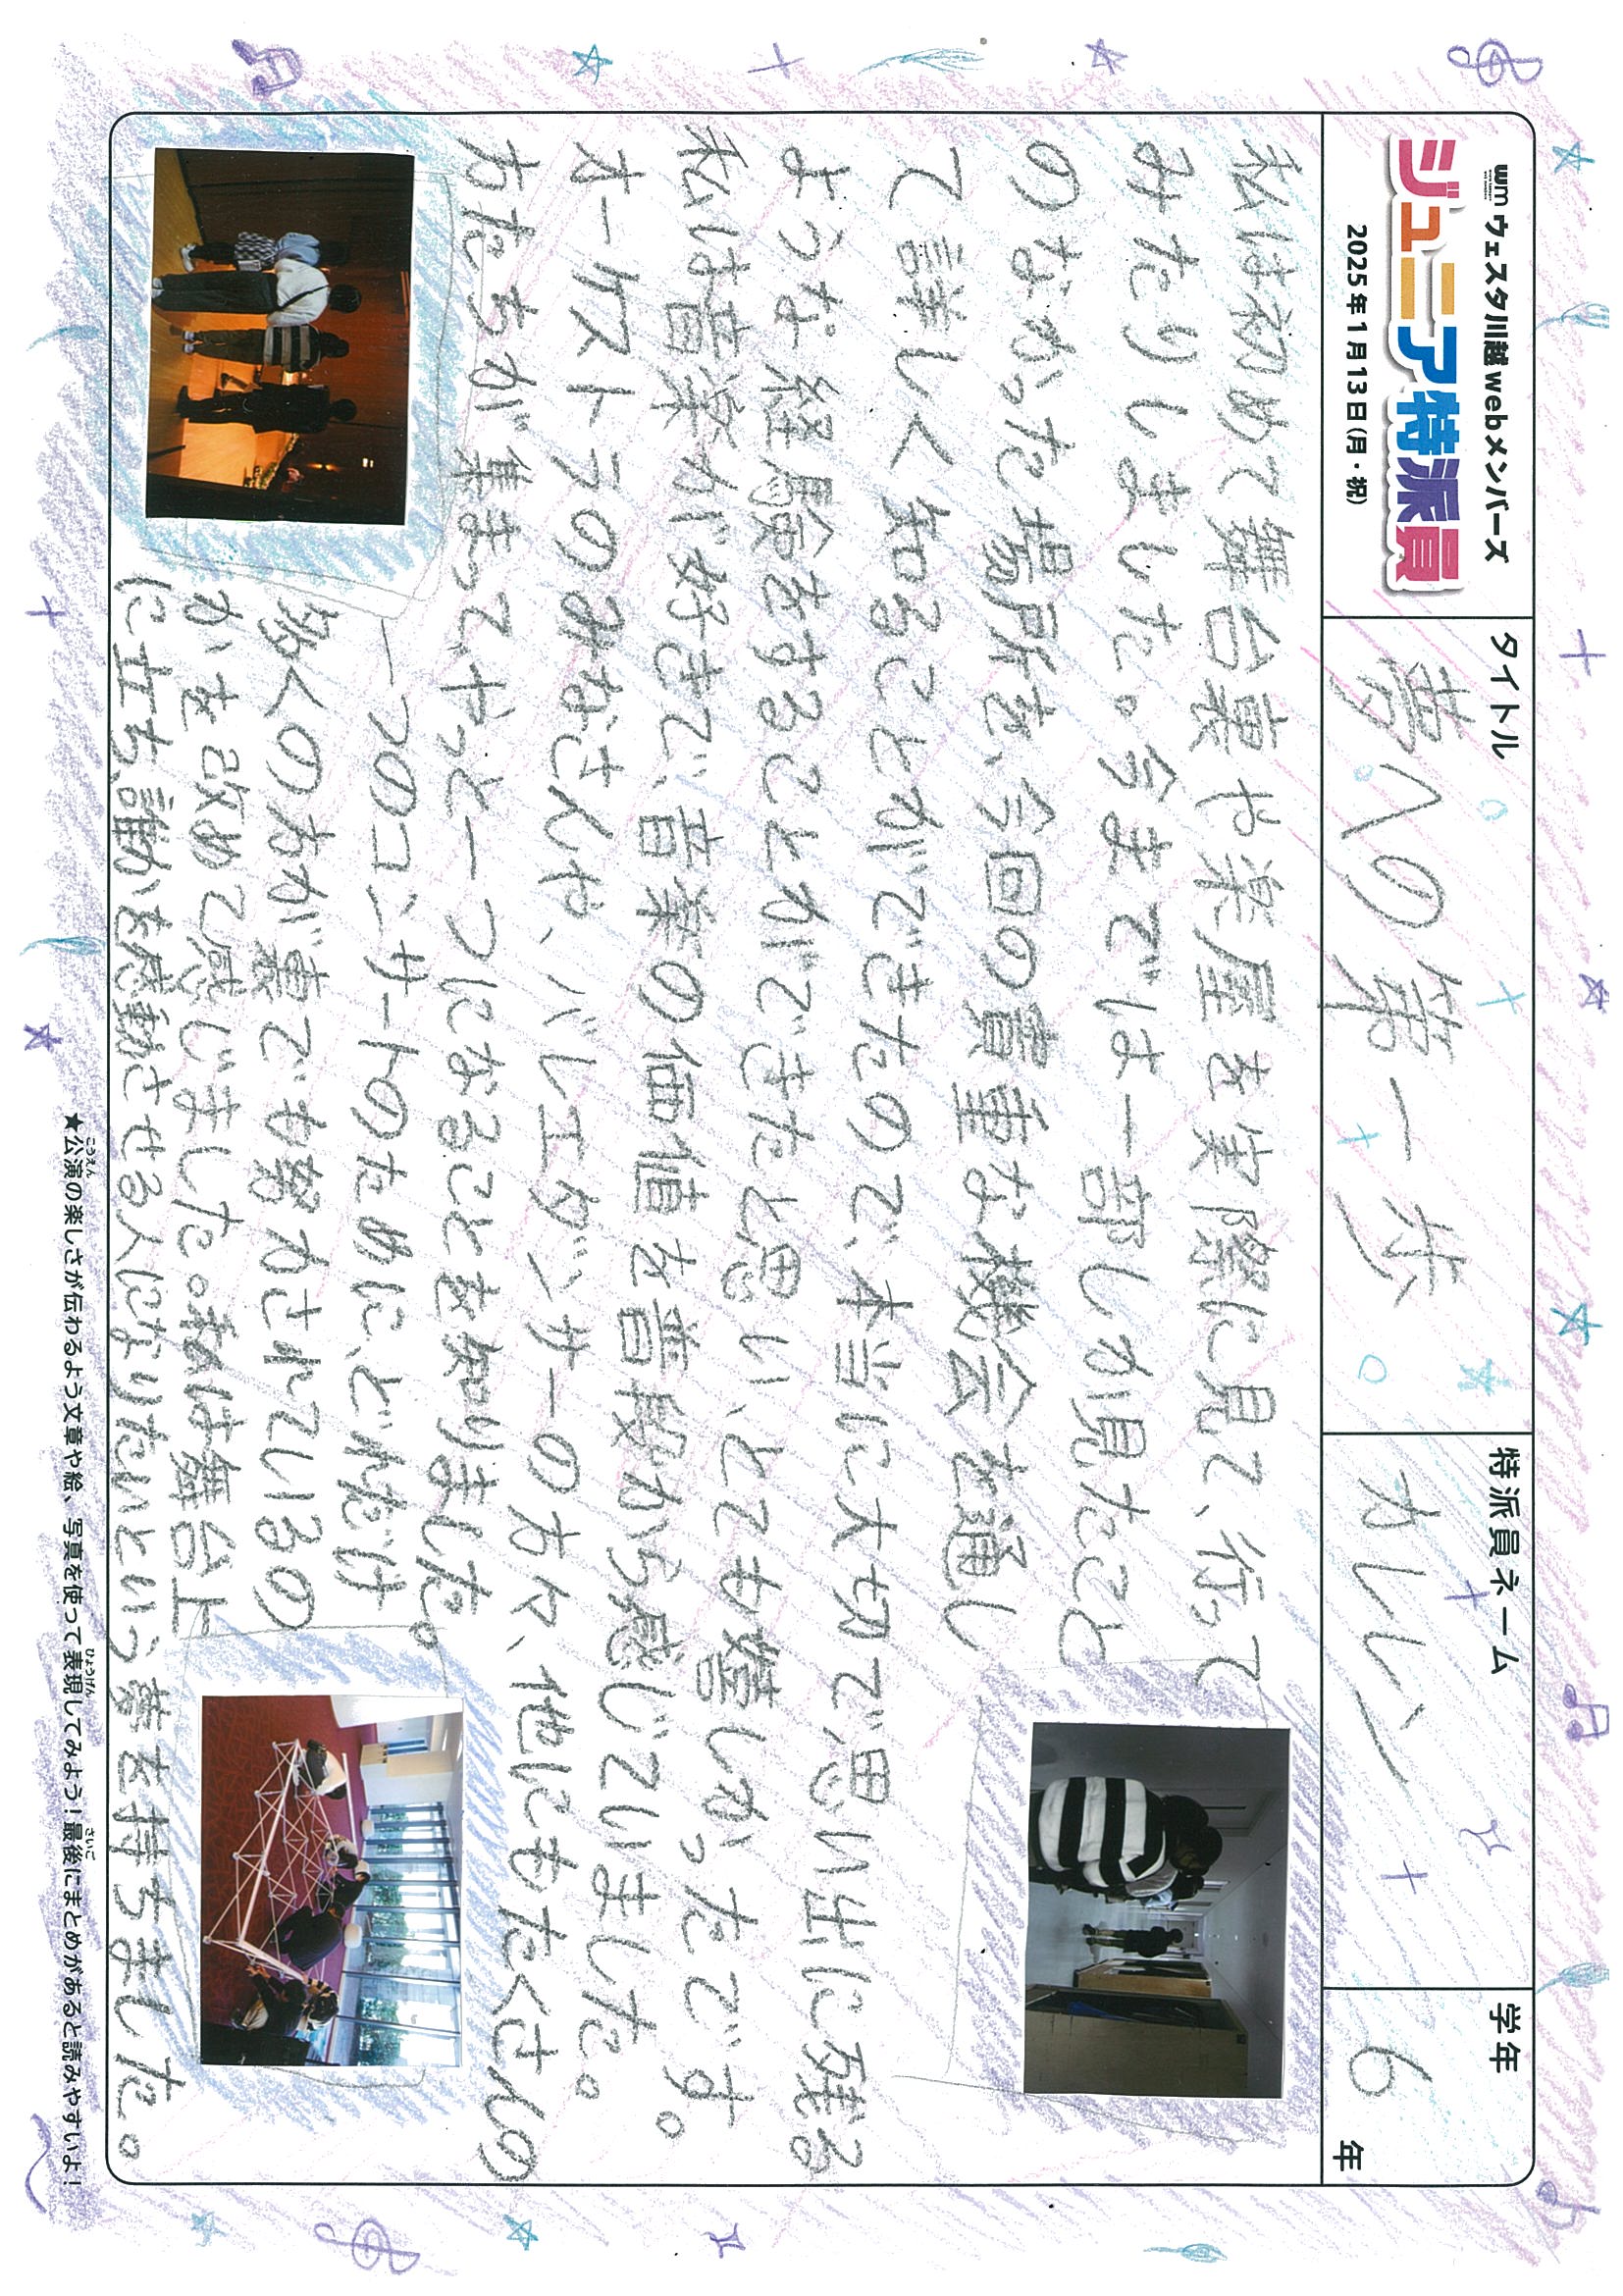 wm ウェスタ川越webメンバーズ
ジュニア特派員
2025年1月13日(月・祝)
タイトル
夢への第一歩
特派員ネーム
カレレン
学年
6年
私は初めて舞台裏や楽屋を実際に見て、行って
みたりしました。今までは一部しか見たこと
のなかった場所を、今回の貴重な機会を通し
て詳しく知ることができたので、本当に大切で思い出に残る
ような経験をすることができたと思い、とても嬉しかったです。
私は音楽が好きで、音楽の価値を普段から感じていました。
オーケストラのみなさんや、バレエダンサーの方々、他にもたくさんの
方たちが集まって、やっと一つになることを知りました。
一つのコンサートのために、どれだけ
多くの方が裏でも努力されているの
かを改めて感じました。私は舞台上
に立ち、誰かを感動させる人になりたいという夢を持ちました。
★公演の楽しさが伝わるよう文章や絵、写真を使って表現してみよう!最後にまとめがあると読みやすいよ!
こうえん
ひょうげん
さいご